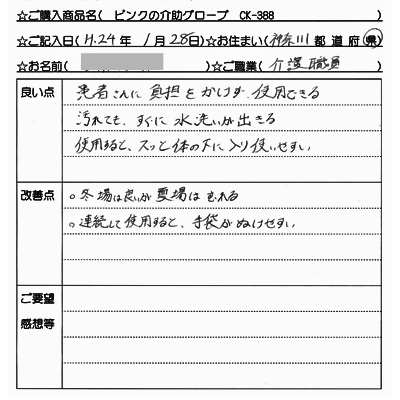 ☆ご購入商品名( ピンクの介助グローブ CK-388 )
☆ご記入日(H.24年 1月28日)☆お住まい(神奈川 都道府県)
☆お名前( )☆ご職業( 介護職員 )
良い点 患者さんに負担をかけず使用できる
汚れても、すぐに水洗いが出きる
使用すると、スッと体の下に入り使いやすい
改善点 ○冬場は良いが夏場はむれる
○連続して使用すると、手袋がぬけやすい
ご要望
感想等